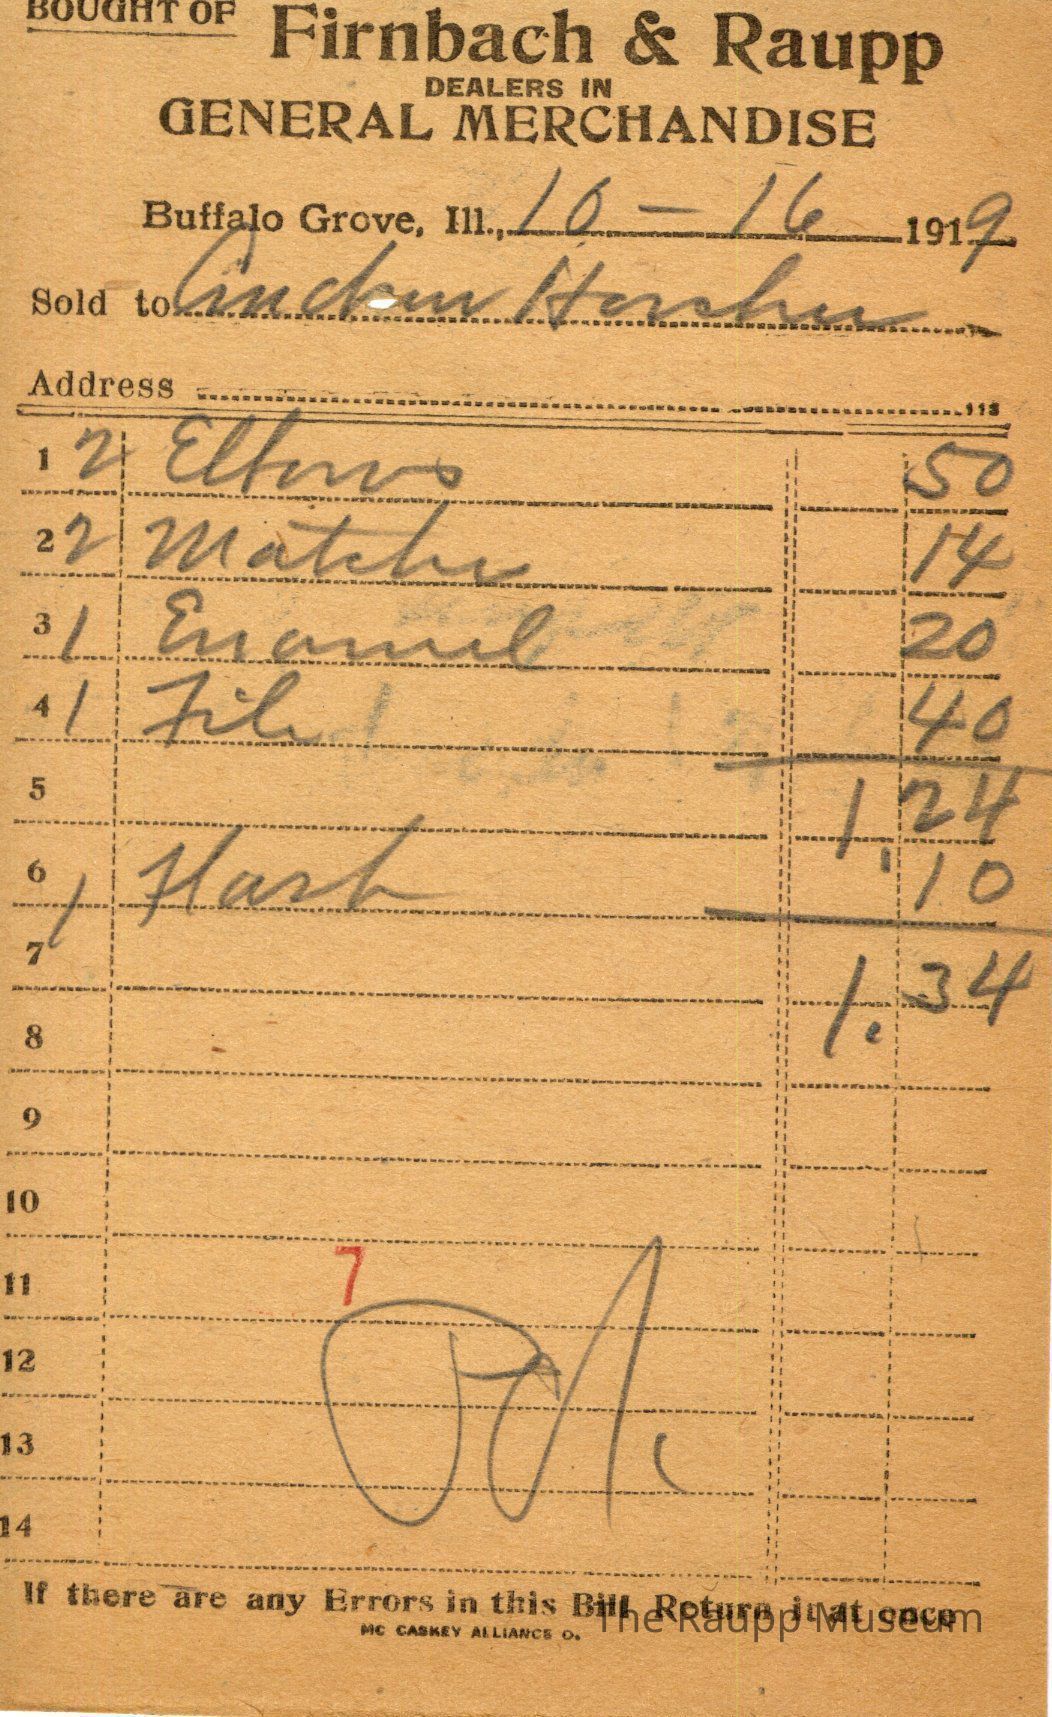 BOUGHT OF
Firnbach & Raupp
DEALERS IN
GENERAL MERCHANDISE
Buffalo Grove, Ill., 10 - 16 1919
Sold to
Address
113
1 2 Elbows 50
2 2 Matches 14
3 1 Enamel 20
4 1 File 40
5 1.24
6 1 10
7 1.34
8
9
10
11 7
12
13
14
If there are any Errors in this Bill Return it at once
The Raupp Museum
MC CASKEY ALLIANCE O.